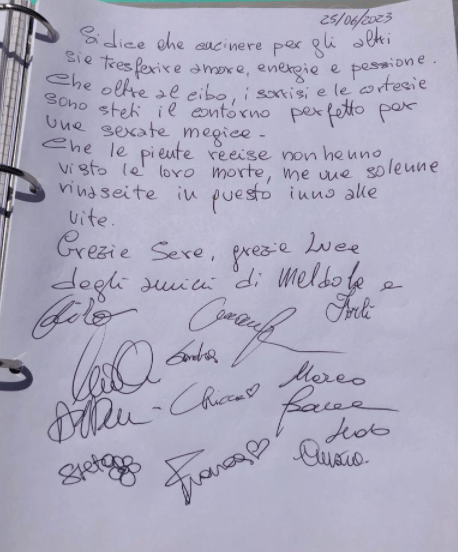 25/06/2023
Si dice che cucinare per gli altri
sia trasferire amore, energia e passione.
Che oltre al cibo, i sorrisi e le cortesie
sono stati il contorno perfetto per
una serata magica -
Che le piante recise non hanno
visto la loro morte, ma una solenne
rinascita in questo inno alla
vita.
Grazie Sara, grazie Luca
dagli amici di Meldola e
Forlì
Sandra
Chiara♡
Marco
Franca♡